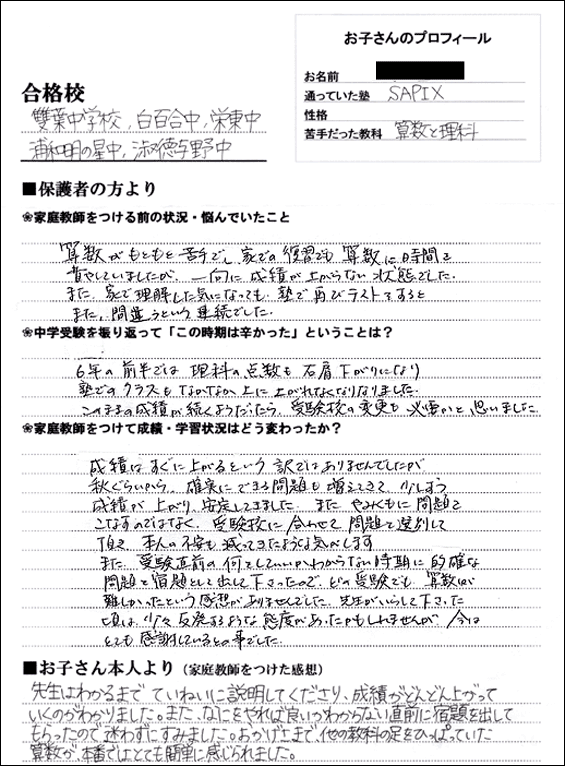 お子さんのプロフィール
お名前
通っていた塾 SAPIX
性格
苦手だった教科 算数と理科
合格校
雙葉中学校, 白百合中, 栄東中
浦和明の星中, 淑徳与野中
■保護者の方より
❀家庭教師をつける前の状況・悩んでいたこと
算数がもともと苦手でし、家での復習でも算数に時間を
費やしていましたが、一向に成績が上がらない状態でした.
また、家で理解した気になっても、塾で再びテストをすると
また、間違うという連続でした.
❀中学受験を振り返って「この時期は辛かった」ということは?
6年の前半では理科の点数も右肩下がりになり
塾でのクラスもなかなか上に上がれなくなりなりました.
このままの成績が続くようだったら、受験校の変更も必要かと思いました.
❀家庭教師をつけて成績・学習状況はどう変わったか?
成績はすぐに上がるという訳ではありませんでしたが
秋ぐらいから、確実にできる問題も増えてきて、少しずつ
成績が上がり、安定してきました. また やみくもに問題を
こなすのではなく、受験校に合わせて問題を選別して
頂き、本人の不安も減ってきたような気がします
また、受験直前の何をしていいかわからない時期に的確な
問題を宿題として出して下さったので、どの受験でも、算数が
難しかったという感想がありませんでした. 先生がいらして下さった
頃は、少々反発するような態度があったかもしれませんが、今は
とても感謝しているとの事でした.
■お子さん本人より(家庭教師をつけた感想)
先生はわかるまでていねいに説明してくださり、成績がどんどん上がって
いくのがわかりました。また、なにをやれば良いかわからない直前に宿題を出して
もらったので迷わずにすみました。おかげさまで、他の教科の足をひっぱっていた
算数が、本番ではとても簡単に感じられました。